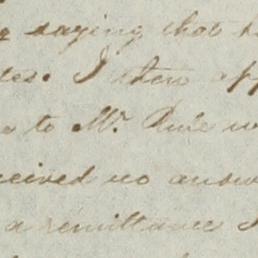 saying that h
tes. I then app
to Mr. Rule w
ceived no answ
a remittance I